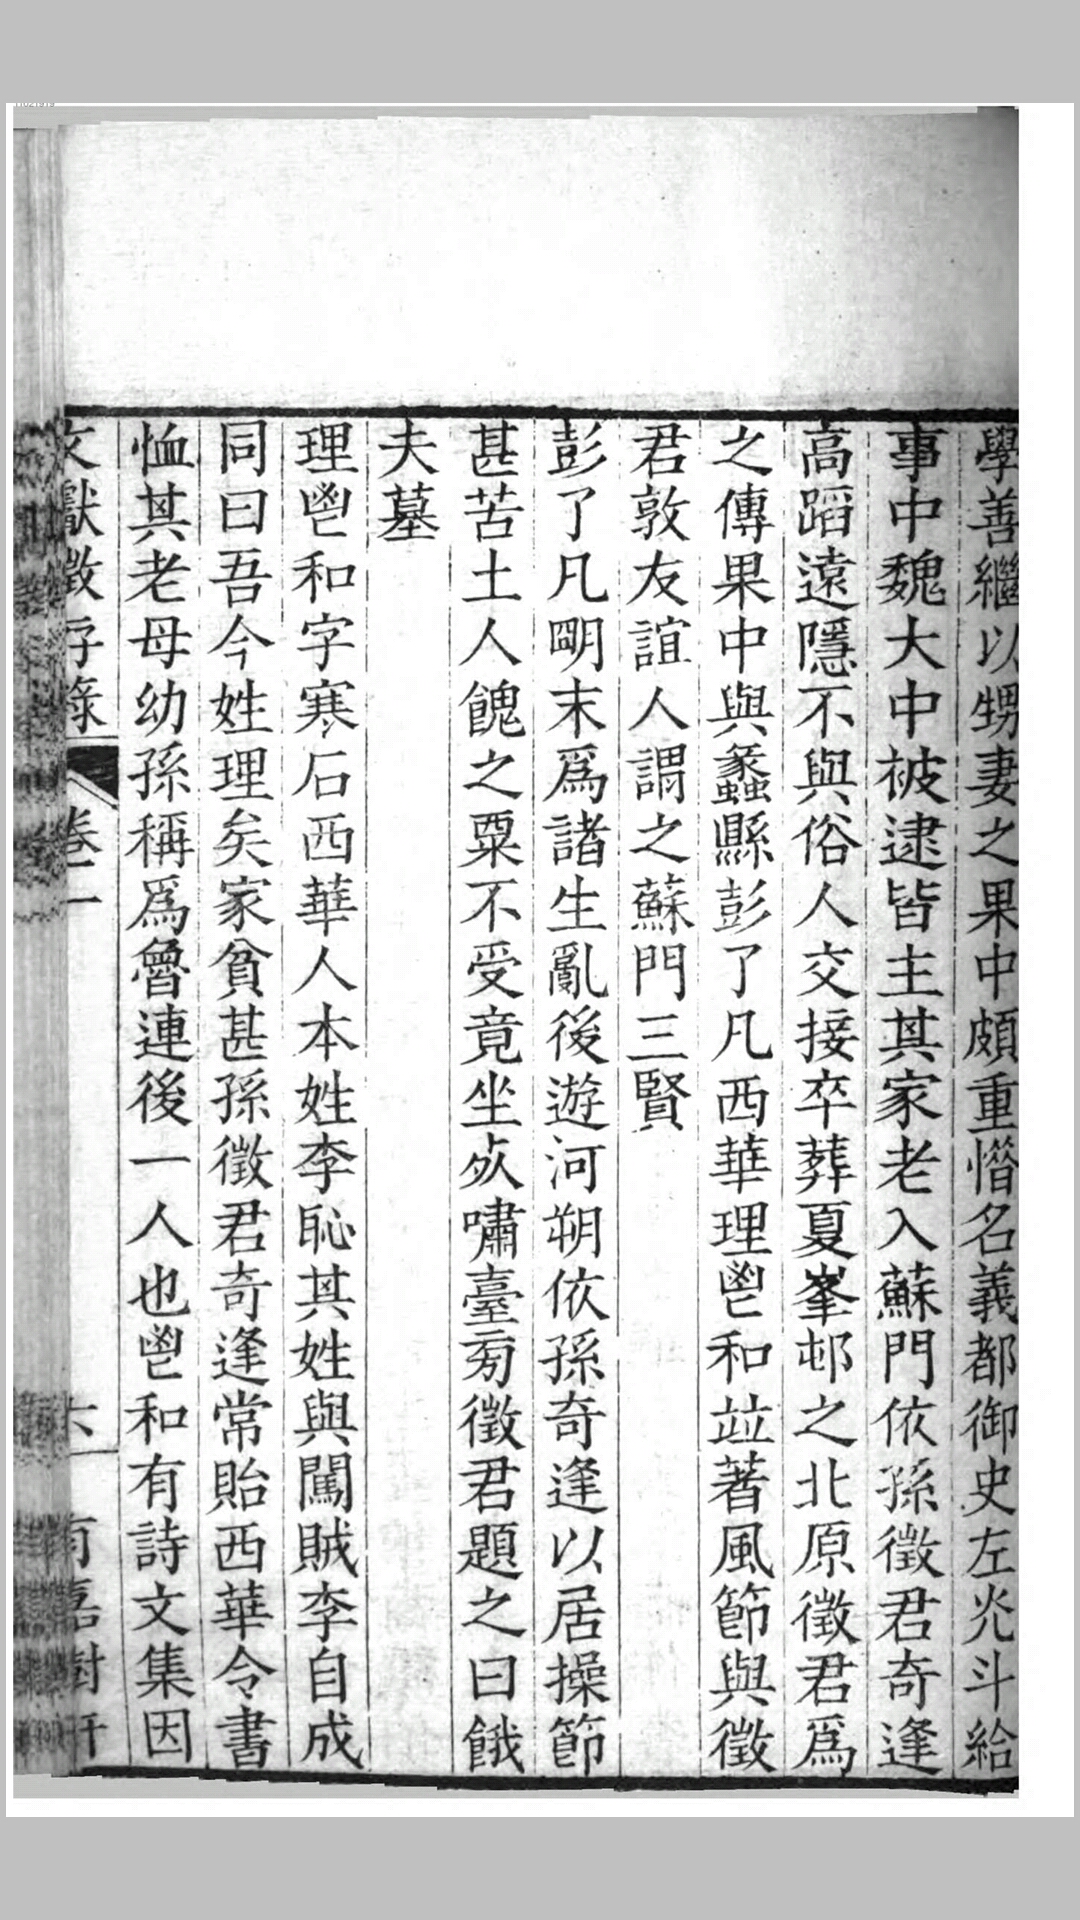 學善繼以甥妻之果中頗重惜名義都御史左光斗給
事中魏大中被逮皆主其家老入蘇門依孫徵君奇逢
高蹈遠隱不與俗人交接卒葬夏峯邨之北原徵君爲
之傳果中與蠡縣彭了凡西華理鬯和竝著風節與徵
君敦友誼人謂之蘇門三賢
彭了凡朙末爲諸生亂後遊河朔依孫奇逢以居操節
甚苦土人餽之粟不受竟坐㱙嘯臺㫄徵君題之曰餓
夫墓
理鬯和字寒石西華人本姓李恥其姓與闖賊李自成
同曰吾今姓理矣家貧甚孫徵君奇逢常貽西華令書
恤其老母幼孫稱爲魯連後一人也鬯和有詩文集因
文獻徵存錄 卷一 六 有嘉樹軒